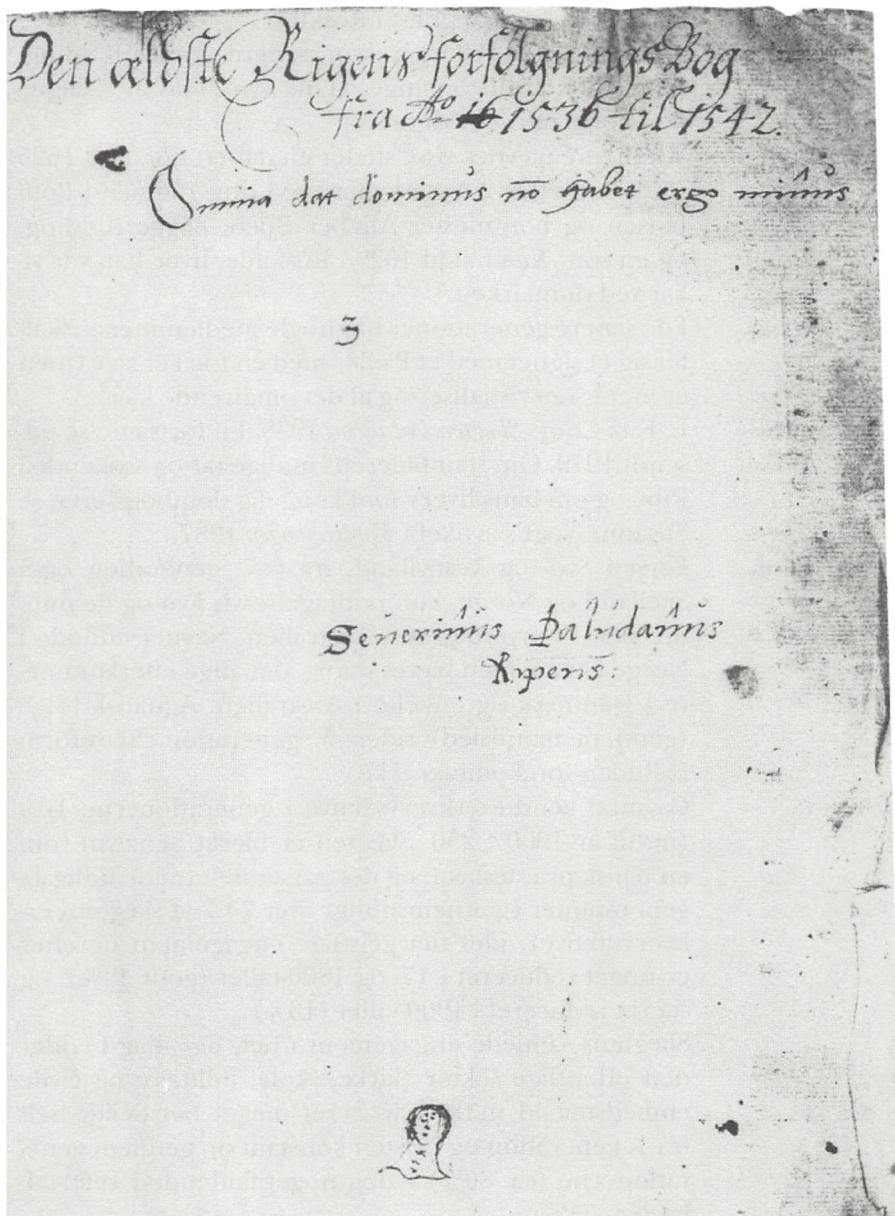 Den ældste Rigens forfölgnings Bog
fra Aо 16 1536 til 1542.
Omnia dat dominus nō habet ergo minus
3
Seuerinus Paludanus
Ripens: